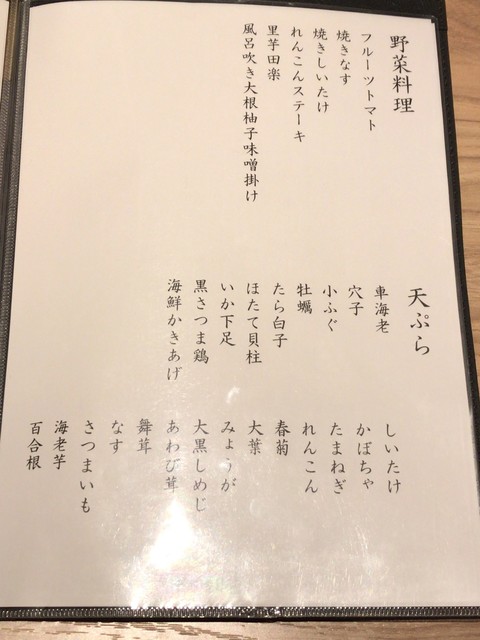 野菜料理
フルーツトマト
焼きなす
焼きしいたけ
れんこんステーキ
里芋田楽
風呂吹き大根柚子味噌掛け
天ぷら
車海老
穴子
小ふぐ
牡蠣
たら白子
ほたて貝柱
いか下足
黒さつま鶏
海鮮かきあげ
しいたけ
かぼちゃ
たまねぎ
れんこん
春菊
大葉
みょうが
大黒しめじ
あわび茸
舞茸
なす
さつまいも
海老芋
百合根